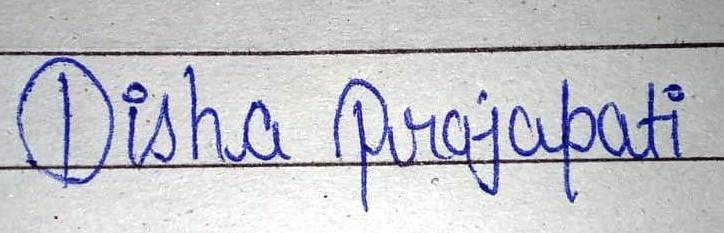 Disha Prajapati